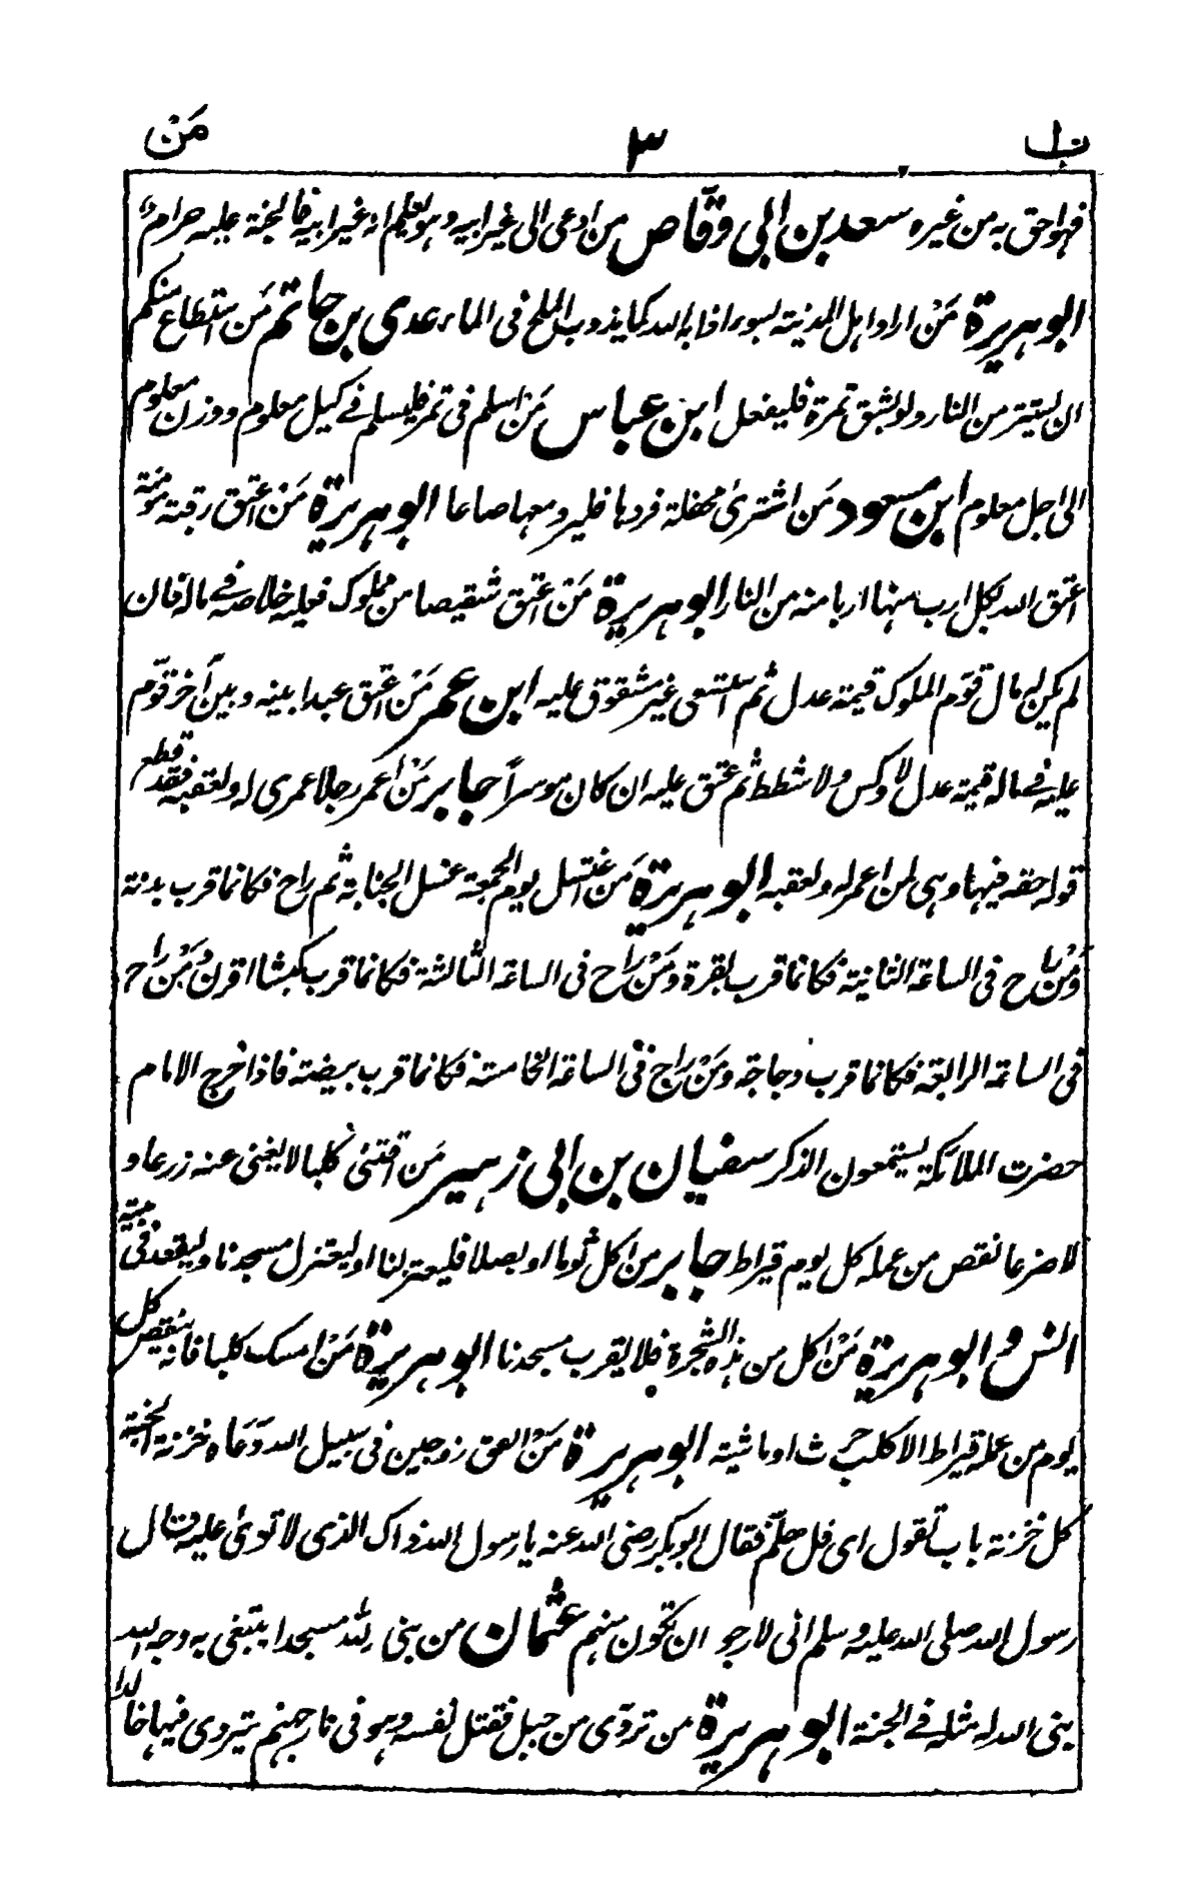 مَن ٣ ب١
فهو احق به من غيره سعد بن ابی وقّاص من ادعى الى غير ابيه وهو يعلم انه غير ابيه فالجنة عليه حرام
ابو هريرة مَنْ اراد اهل المدينة بسوء اذابه الله كما يذوب الملح فی الماء عدی بن حاتم مَن استطاع منكم
ان يستتر من النار ولو بشق تمرة فليفعل ابن عباس مَن اسلم فی تمر فليسلم فے كيل معلوم ووزن معلوم
الى اجل معلوم ابن مسعود مَن اشترىٰ محفلة فردها فليرد معها صاعا ابو هريرة مَنْ اعتق رقبة مؤمنة
اعتق الله بكل ارب منها اربا منه من النار ابو هريرة مَنْ اعتق شقيصا من مملوك فعليه خلاصه فے ماله فان
لم يكن له مال قوّم المملوك قيمة عدل ثم استسعى غير مشقوق عليه ابن عمر مَنْ اعتق عبدا بينه وبين آخر قوّم
عليه فے ماله قيمة عدل لا وكس ولا شطط ثم عتق عليه ان كان موسراً جابر مَنْ اعمر رجلا عمرى له ولعقبه فقد قطع
قوله حقه فيها وهی لمن اعمر له ولعقبه ابو هريرة مَن اغتسل يوم الجمعة غسل الجنابة ثم راح فكانما قرب بدنة
وَمَنْ راح فی الساعة الثانية فكانما قرب بقرة ومَنْ راح فی الساعة الثالثة فكانما قرب كبشا اقرن ومَنْ راح
فی الساعة الرابعة فكانما قرب دجاجة ومَنْ راح فی الساعة الخامسة فكانما قرب بيضة فاذا خرج الامام
حضرت الملائكة يستمعون الذكر سفيان بن ابی زهير مَن اقتنىٰ كلبا لا يغنی عنه زرعا و
لا ضرعا نقص من عمله كل يوم قيراط جابر من اكل ثوما او بصلا فليعتزلنا او ليعتزل مسجدنا وليقعد فی بيته
انس و ابو هريرة مَنْ اكل من هذه الشجرة فلا يقرب مسجدنا ابو هريرة مَنْ امسك كلبا فانه ينقص كل
يوم من عمله قيراط الا كلب حرث او ماشية ابو هريرة مَنْ انفق زوجين فی سبيل الله دَعَاه خزنة الجنة
كل خزنة باب تقول ای فل هلمّ فقال ابو بكر رضی الله عنه يا رسول الله ذاك الذی لا توىٰ عليه قال
رسول الله صلى الله عليه وسلم انی لارجو ان تكون منهم عثمان من بنى لله مسجدا يبتغی به وجه الله
بنى الله له مثله فے الجنة ابو هريرة من تردّى من جبل فقتل نفسه وهو فی نار جهنم يتردى فيها خالدا